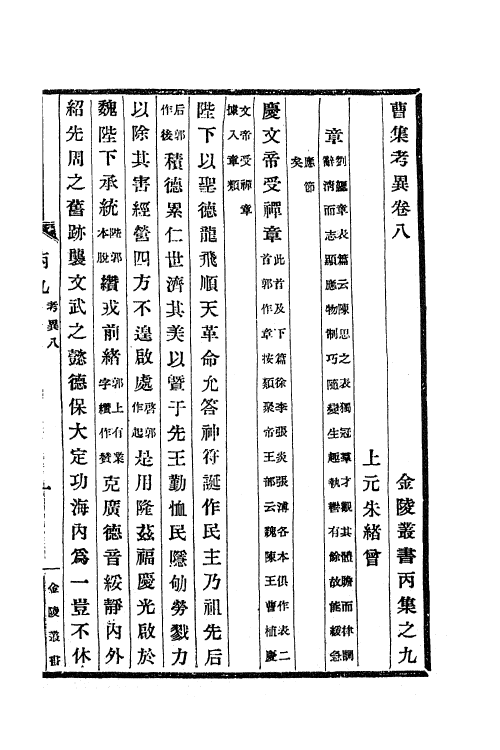 曹集考異卷八
金陵叢書丙集之九
上元朱緒曾
章
劉勰章表篇云陳思之表獨冠羣才觀其體贍而律調
辭清而志顯應物制巧隨變生趣執轡有餘故能緩急
應節
矣
慶文帝受禪章
此首及下篇徐李張炎張溥各本俱作表二
首郭作章按類聚帝王部云魏陳王曹植慶
文帝受禪章
據入章類
陛下以聖德龍飛順天革命允答神符誕作民主乃祖先后
后郭
作後
積德累仁世濟其美以暨于先王勤恤民隱劬勞戮力
以除其害經營四方不遑啟處
啓郭
作起
是用隆茲福慶光啟於
魏陛下承統
陛郭
本脫
纘戎前緒
郭上有業
字纘作贊
克廣德音綏靜內外
紹先周之舊跡襲文武之懿德保大定功海內爲一豈不休
丙九
考異八
一
金陵叢書